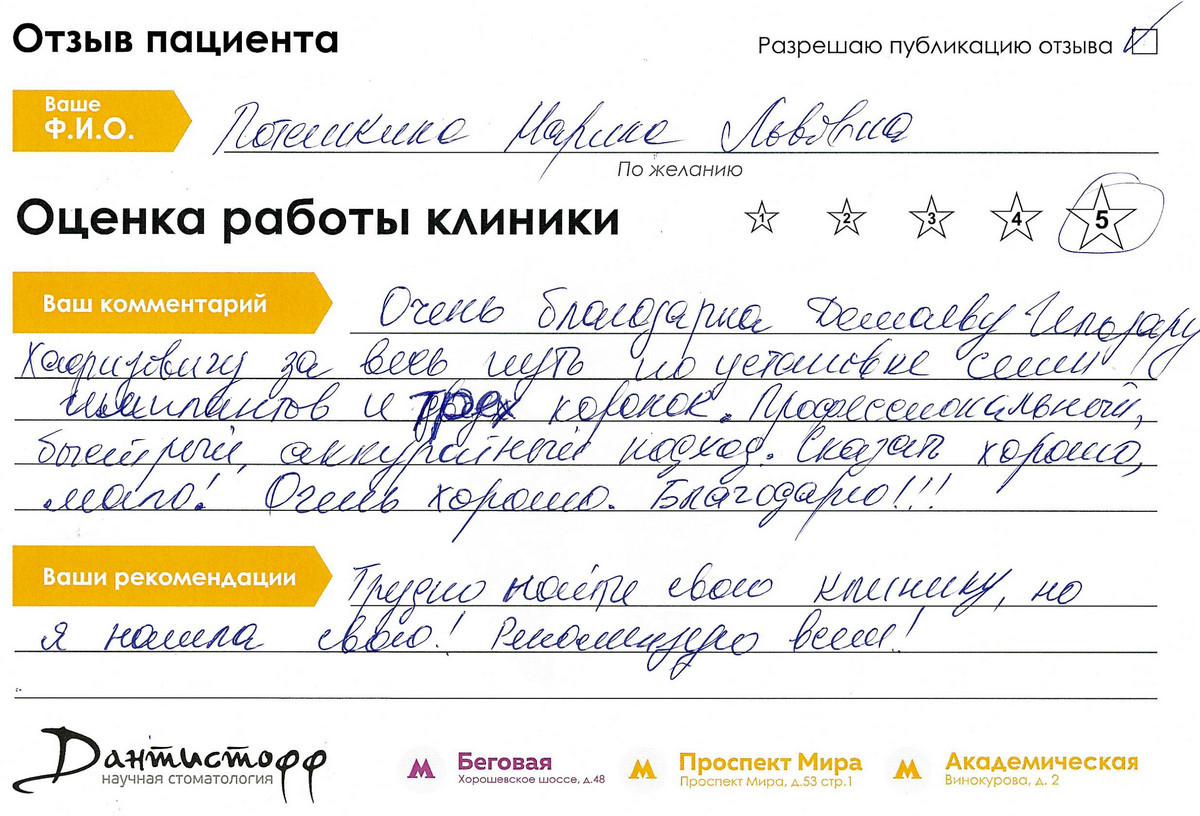 Отзыв пациента
Разрешаю публикацию отзыва
Ваше
Ф.И.О.
Потешкина Марина Львовна
По желанию
Оценка работы клиники
1 2 3 4 5
Ваш комментарий
Очень благодарна
за весь путь по установке семи
имплантов и трёх коронок. Профессиональный,
быстрый, аккуратный подход. Сказать хорошо,
мало! Очень хорошо. Благодарю!!!
Ваши рекомендации
Трудно найти свою клинику, но
я нашла свою! Рекомендую всем!
Дантистофф
научная стоматология
Беговая
Хорошевское шоссе, д.48
Проспект Мира
Проспект Мира, д.53 стр.1
Академическая
Винокурова, д. 2